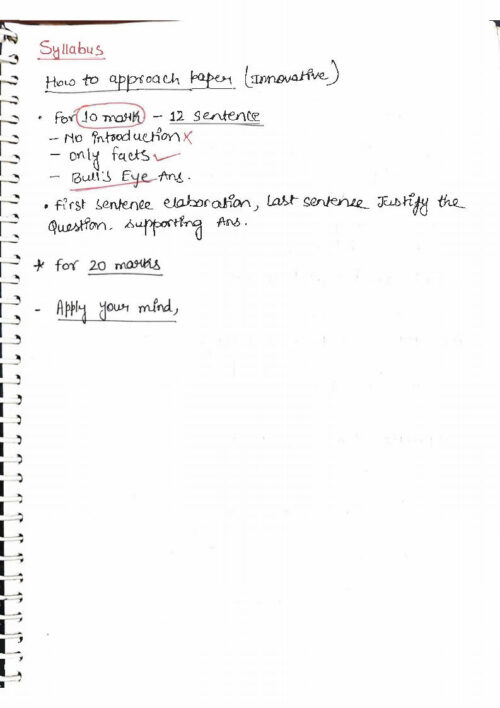 Syllabus
How to approach paper (Innovative)
• for 10 mark - 12 sentence
- No introduction ✗
- only facts ✓
- Bull's Eye Ans.
• First sentence elaboration, Last sentence Justify the
Question. supporting Ans.
* for 20 marks
- Apply your mind,